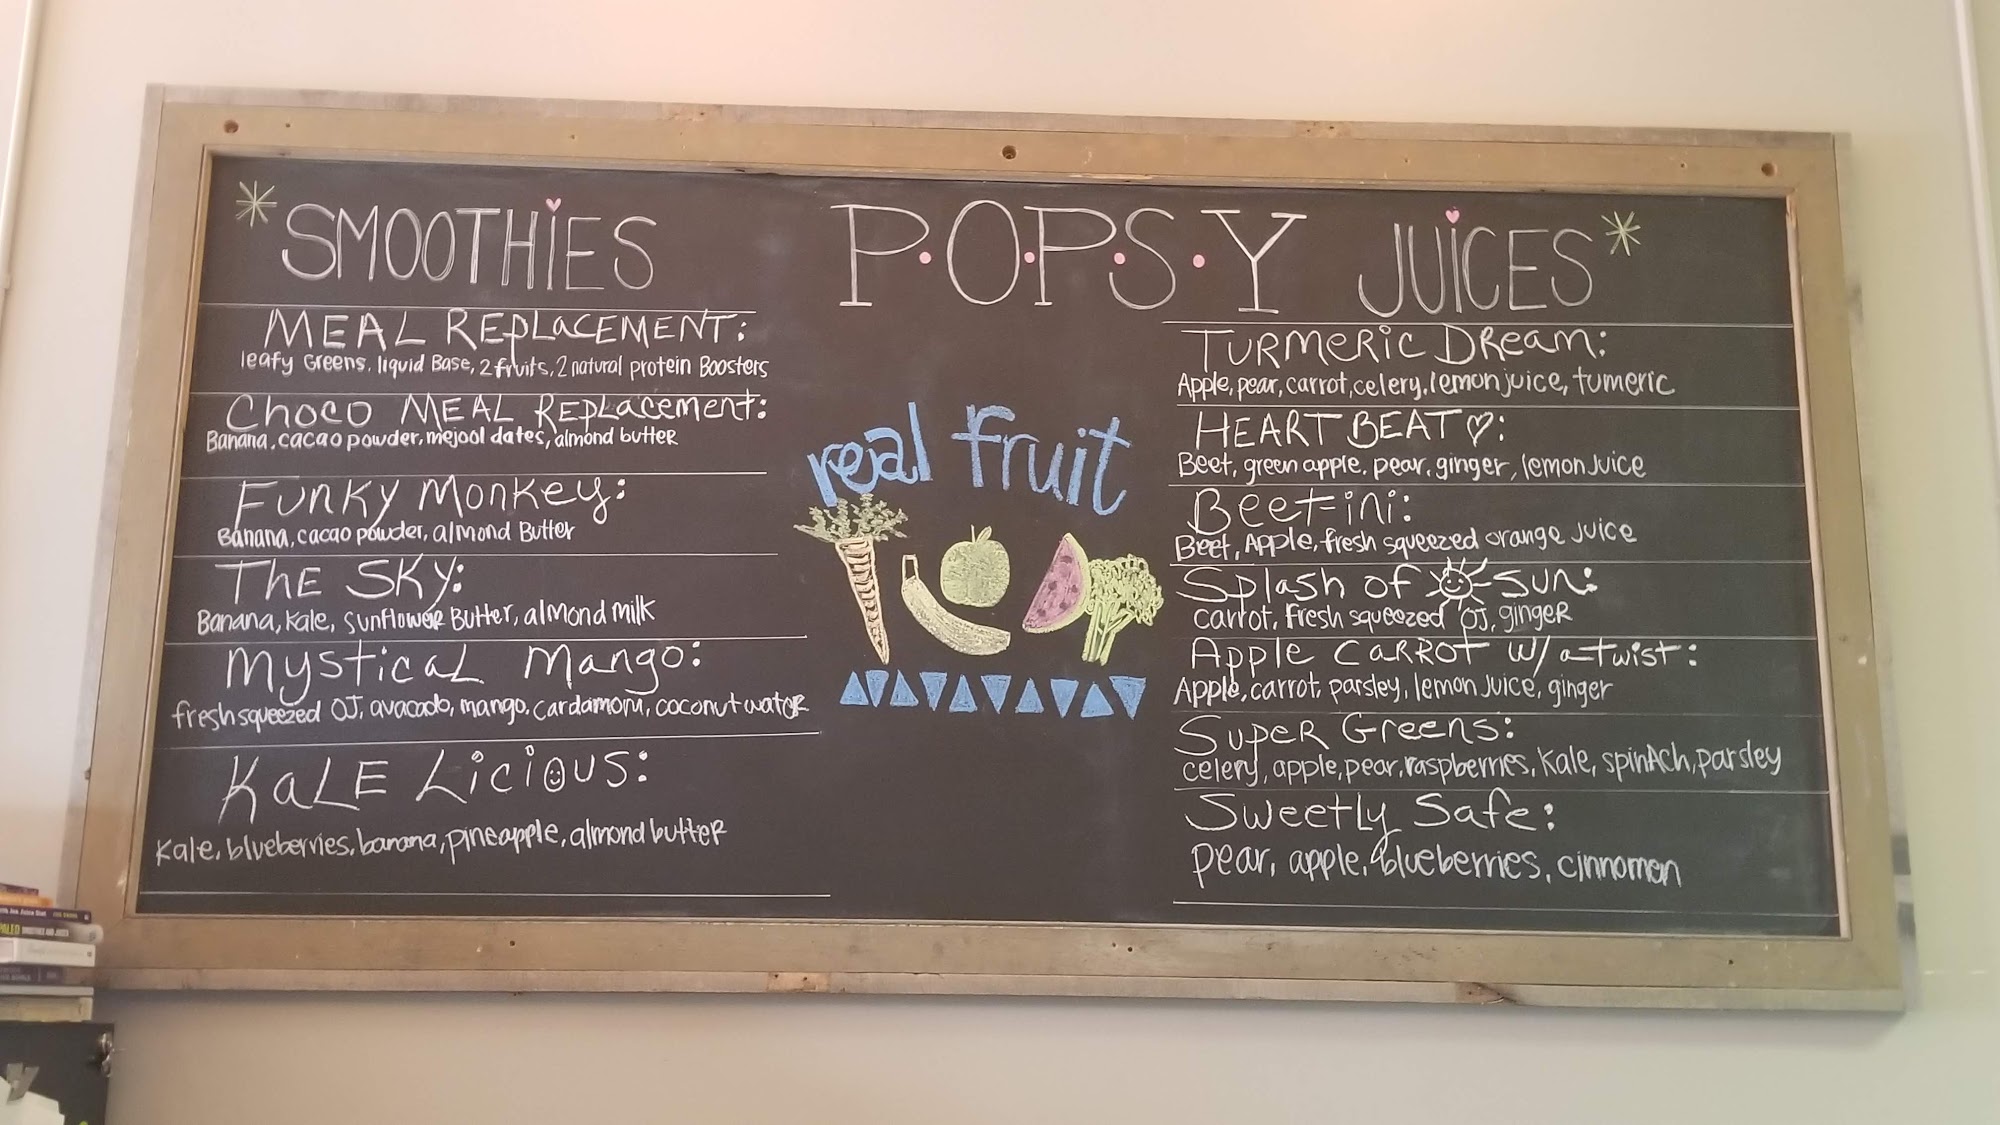 SMOOTHIES
MEAL REPLACEMENT:
leafy Greens, liquid Base, 2 fruits, 2 natural protein Boosters
CHOCO MEAL REPLACEMENT:
Banana, cacao powder, mejool dates, almond butter
FUNKY MONKEY:
Banana, cacao powder, almond Butter
THE SKY:
Banana, Kale, Sunflower Butter, almond milk
MYSTICAL MANGO:
fresh squeezed OJ, avacado, mango, cardamom, coconut water
KALE LICIOUS:
Kale, blueberries, banana, pineapple, almond butter
P.O.P.S.Y
real fruit
JUICES
TURMERIC DREAM:
Apple, pear, carrot, celery, lemon juice, tumeric
HEART BEAT♡:
Beet, green apple, pear, ginger, lemon Juice
Beet-ini:
Beet, Apple, fresh squeezed orange Juice
Splash of SUN:
carrot, fresh squeezed OJ, ginger
Apple CARROT w/ a-twist:
Apple, carrot, parsley, lemon Juice, ginger
Super Greens:
celery, apple, pear, raspberries, Kale, spinAch, parsley
Sweetly Safe:
pear, apple, blueberries, cinnomon